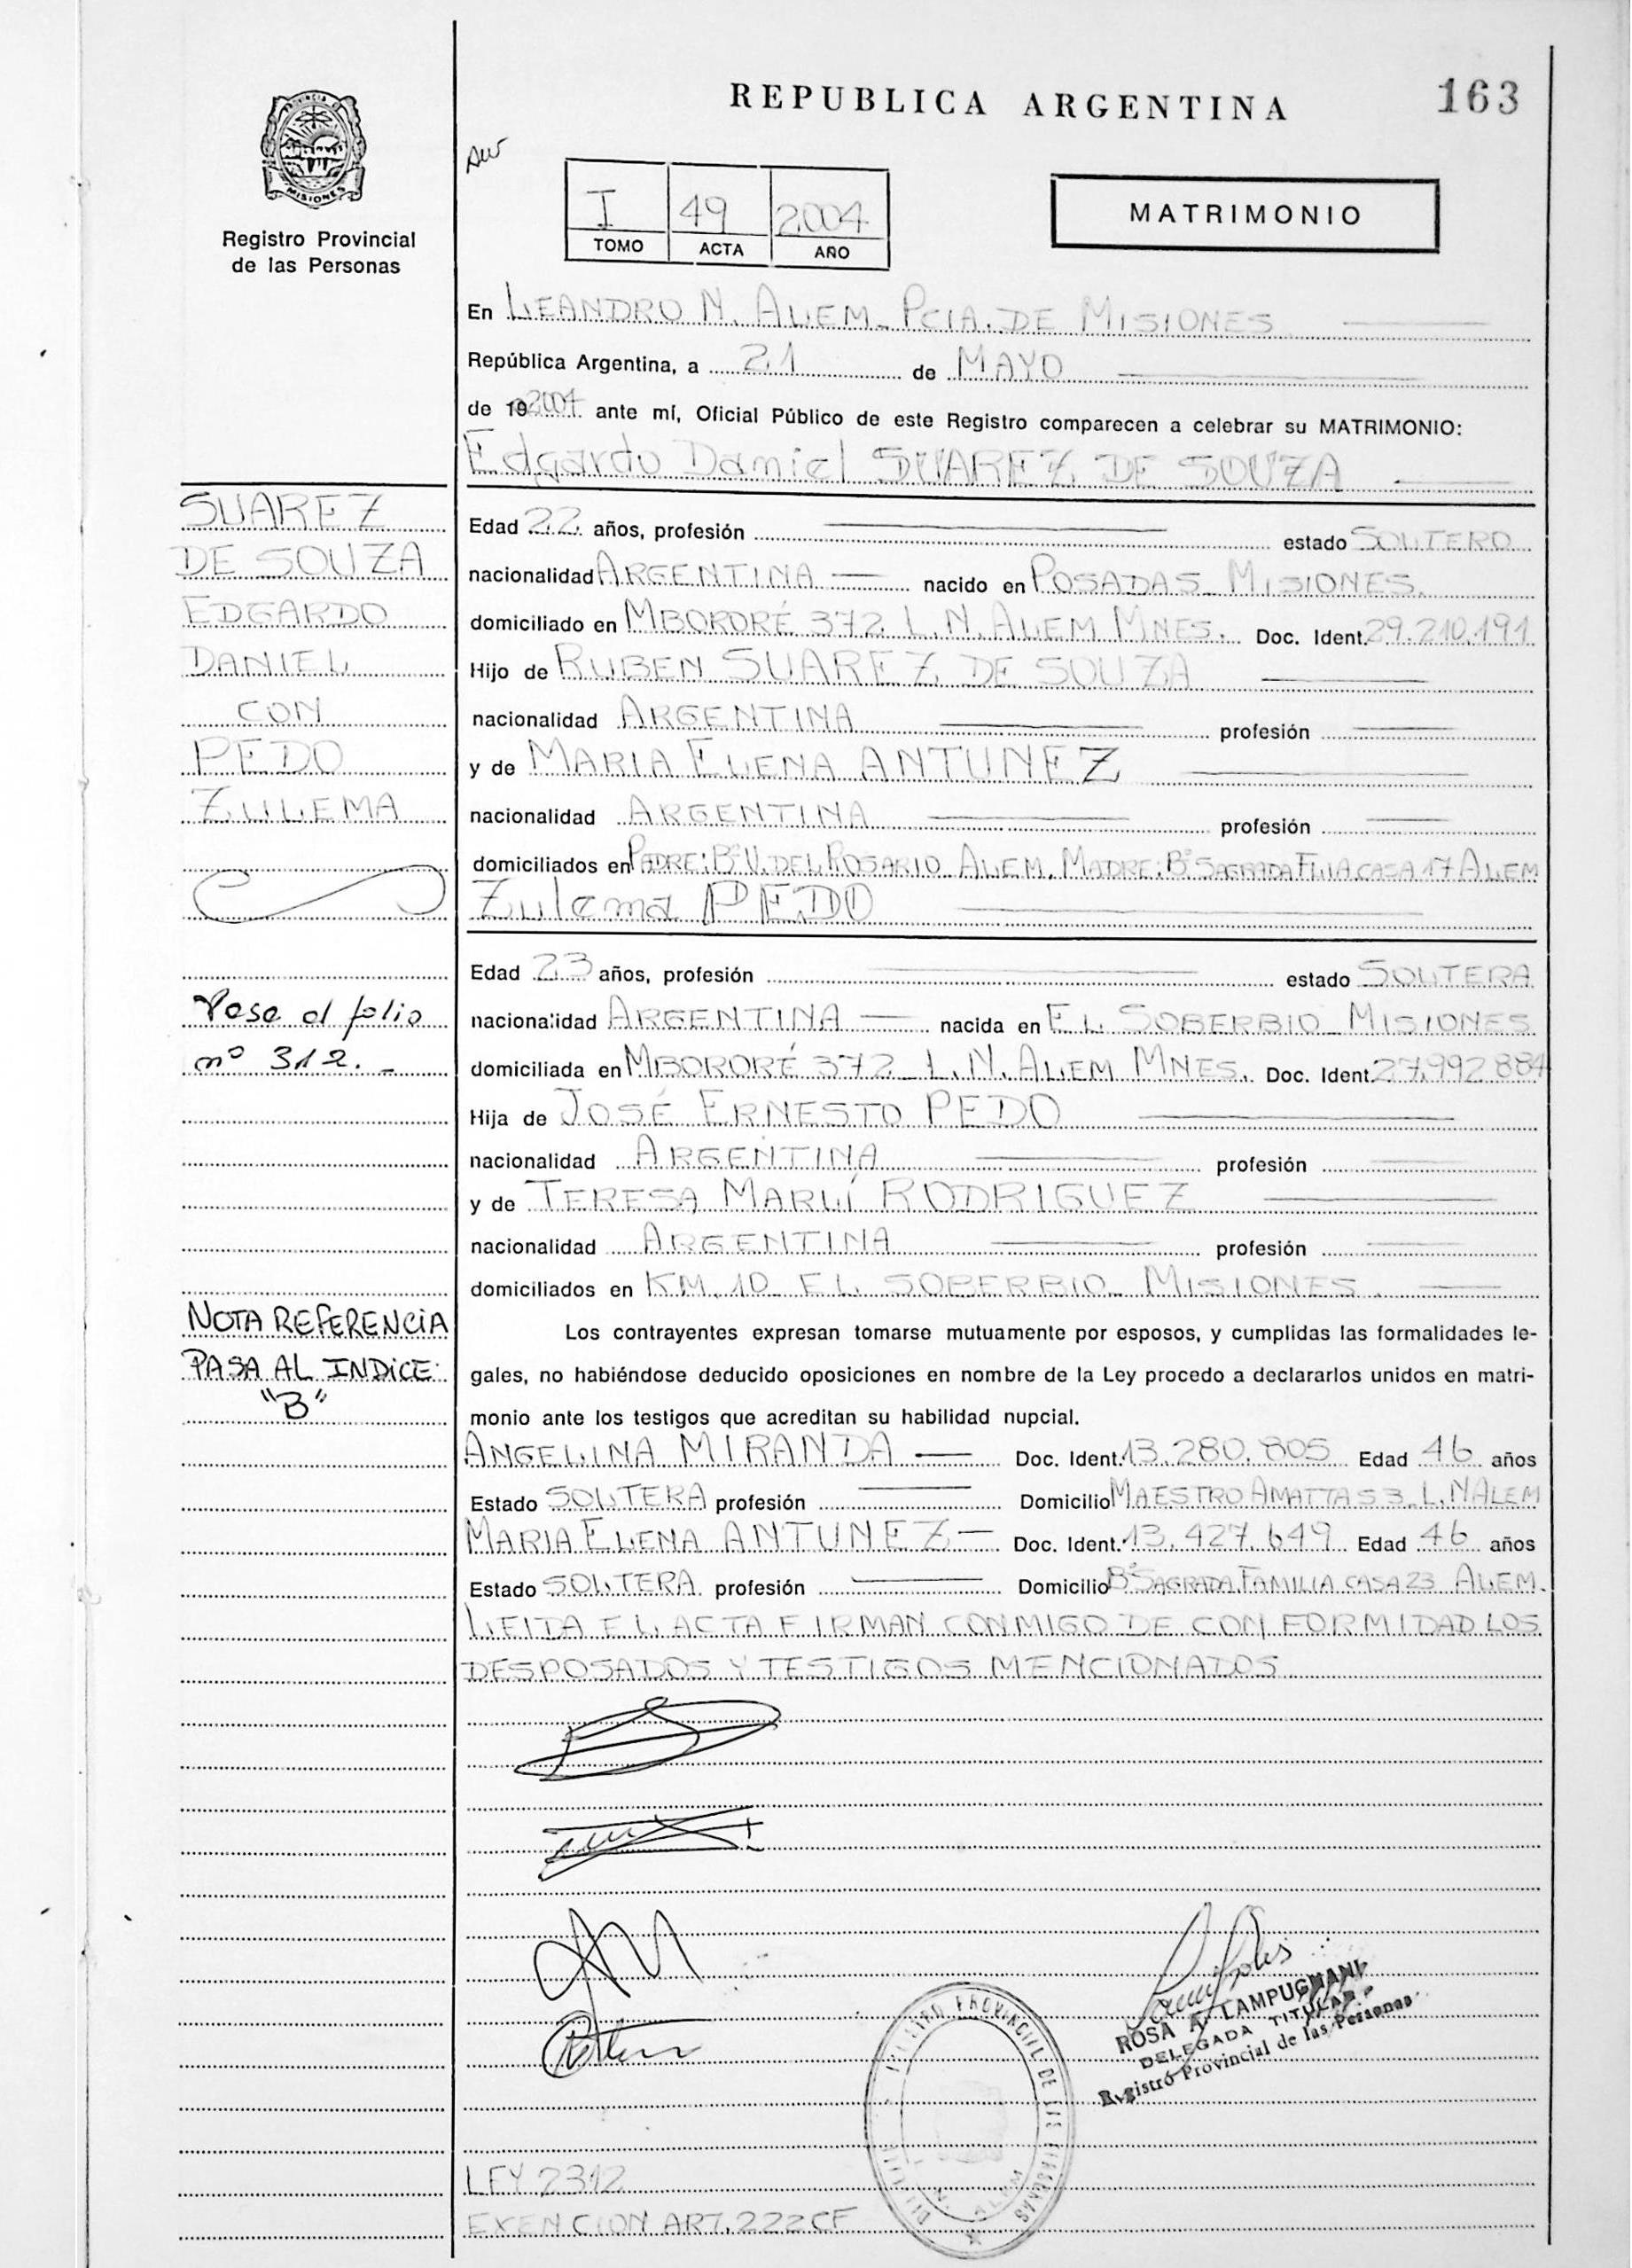 REPUBLICA ARGENTINA
163
MISIONES
Registro Provincial
de las Personas
I 49 2004
TOMO ACTA AÑO
MATRIMONIO
En LEANDRO N. ALEM. PCIA. DE MISIONES
República Argentina, a 21 de MAYO
de 19 2004 ante mí, Oficial Público de este Registro comparecen a celebrar su MATRIMONIO:
Edgardo Daniel SUAREZ DE SOUZA
SUAREZ
DE SOUZA
EDGARDO
DANIEL
CON
PEDO
ZULEMA
Edad 22 años, profesión estado SOLTERO
nacionalidad ARGENTINA nacido en POSADAS MISIONES.
domiciliado en MBORORÉ 372 L.N. ALEM MNES. Doc. Ident. 29.210.191
Hijo de RUBEN SUAREZ DE SOUZA
nacionalidad ARGENTINA profesión
y de MARIA ELENA ANTUNEZ
nacionalidad ARGENTINA profesión
domiciliados en PADRE: Bº V. DEL ROSARIO ALEM. MADRE: Bº SAGRADA FLIA CASA 17 ALEM
Zulema PEDO
Pasa al folio
nº 312. -
Edad 23 años, profesión estado SOLTERA
nacionalidad ARGENTINA nacida en EL SOBERBIO MISIONES
domiciliada en MBORORÉ 372 L.N. ALEM MNES. Doc. Ident. 27.992.884
Hija de JOSÉ ERNESTO PEDO
nacionalidad ARGENTINA profesión
y de TERESA MARLÍ RODRIGUEZ
nacionalidad ARGENTINA profesión
domiciliados en KM. 10 EL SOBERBIO MISIONES.
NOTA REFERENCIA
PASA AL INDICE
"B"
Los contrayentes expresan tomarse mutuamente por esposos, y cumplidas las formalidades le-
gales, no habiéndose deducido oposiciones en nombre de la Ley procedo a declararlos unidos en matri-
monio ante los testigos que acreditan su habilidad nupcial.
ANGELINA MIRANDA Doc. Ident. 13.280.805 Edad 46 años
Estado SOLTERA profesión Domicilio MAESTRO AMATTA 53 L.N ALEM
MARIA ELENA ANTUNEZ Doc. Ident. 13.427.649 Edad 46 años
Estado SOLTERA profesión Domicilio Bº SAGRADA FAMILIA CASA 23 ALEM.
LEIDA EL ACTA FIRMAN CONMIGO DE CONFORMIDAD LOS
DESPOSADOS Y TESTIGOS MENCIONADOS
ROSA A. LAMPUGNANI
DELEGADA TITULAR
Registro Provincial de las Personas
LEY 2312
EXENCION ART. 222 CF